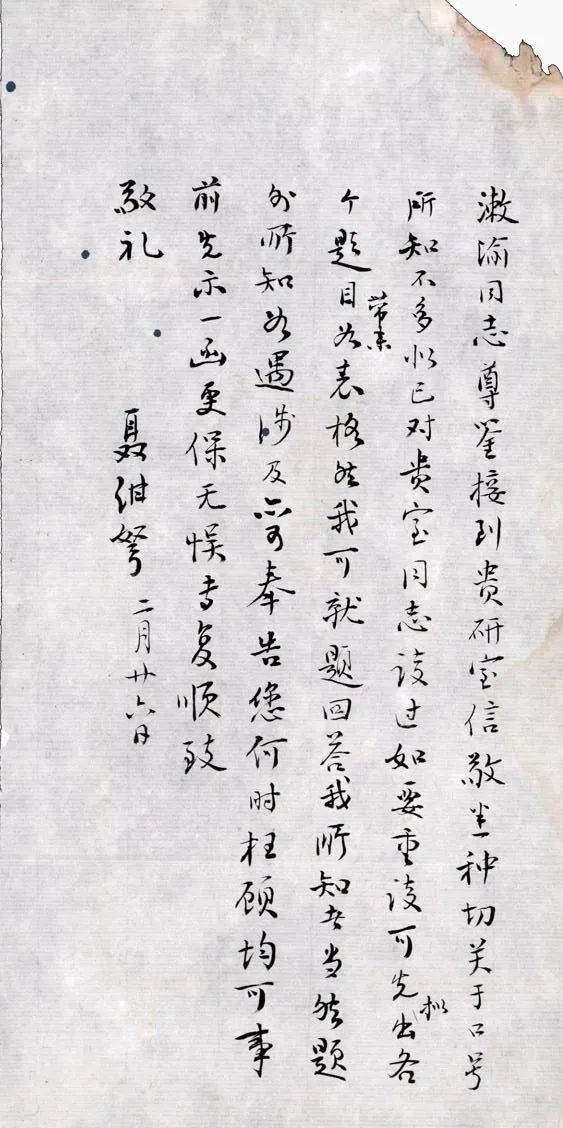 漱渝同志尊鉴接到贵研室信敬悉种切关于口号
所知不多似已对贵室同志谈过如要重谈可先拟出各
个题目如表格带来然我可就题回答我所知者当然题
外所知如遇涉及亦可奉告您何时枉顾均可事
前先示一函更保无悞专复顺致
敬礼
聂绀弩 二月廿六日